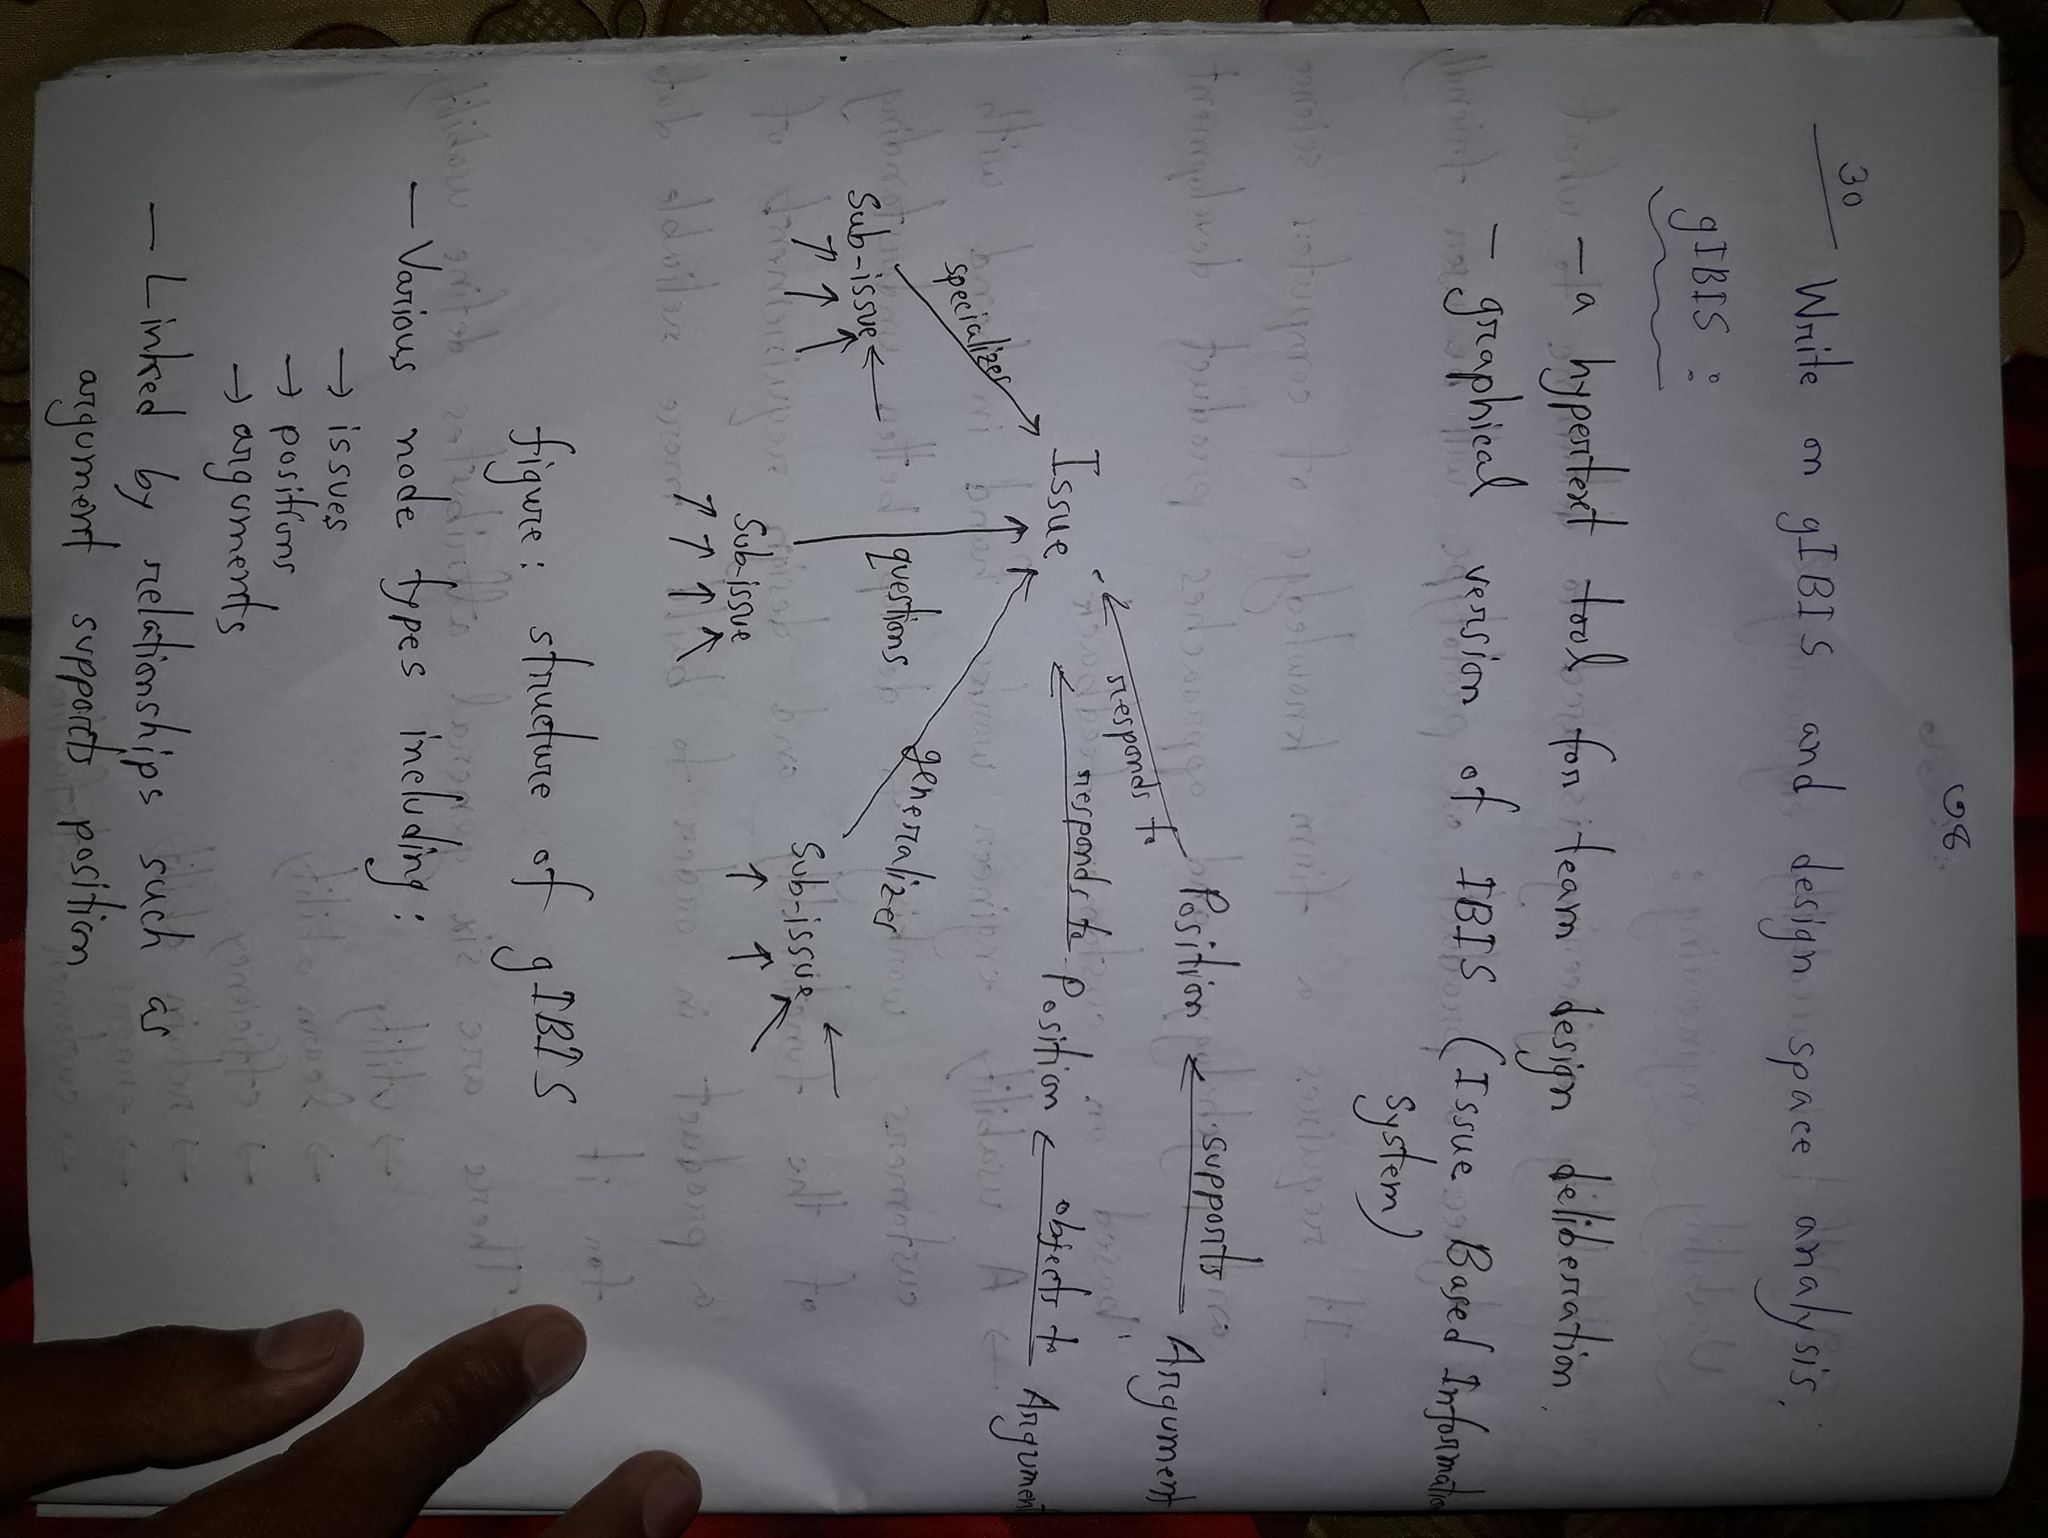 ৩৪
30
Write on gIBIS and design space analysis.
gIBIS :
- a hypertext tool for team design deliberation.
- graphical version of IBIS (Issue Based Information
system)
Position supports Argument
responds to
Issue responds to Position objects to Argument
specializes
questions generalizes
Sub-issue
Sub-issue
Sub-issue
figure: structure of gIBIS
- Various node types including:
→ issues
→ positions
→ arguments
- Linked by relationships such as
argument supports position